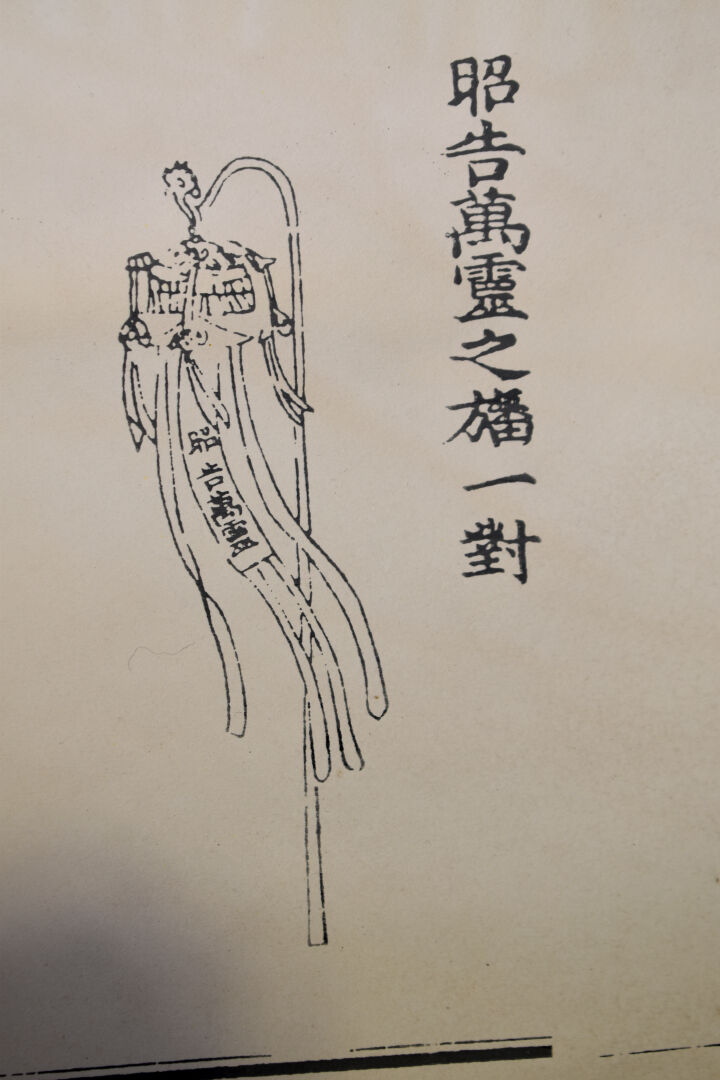 昭告萬靈之旛一對
昭告萬靈